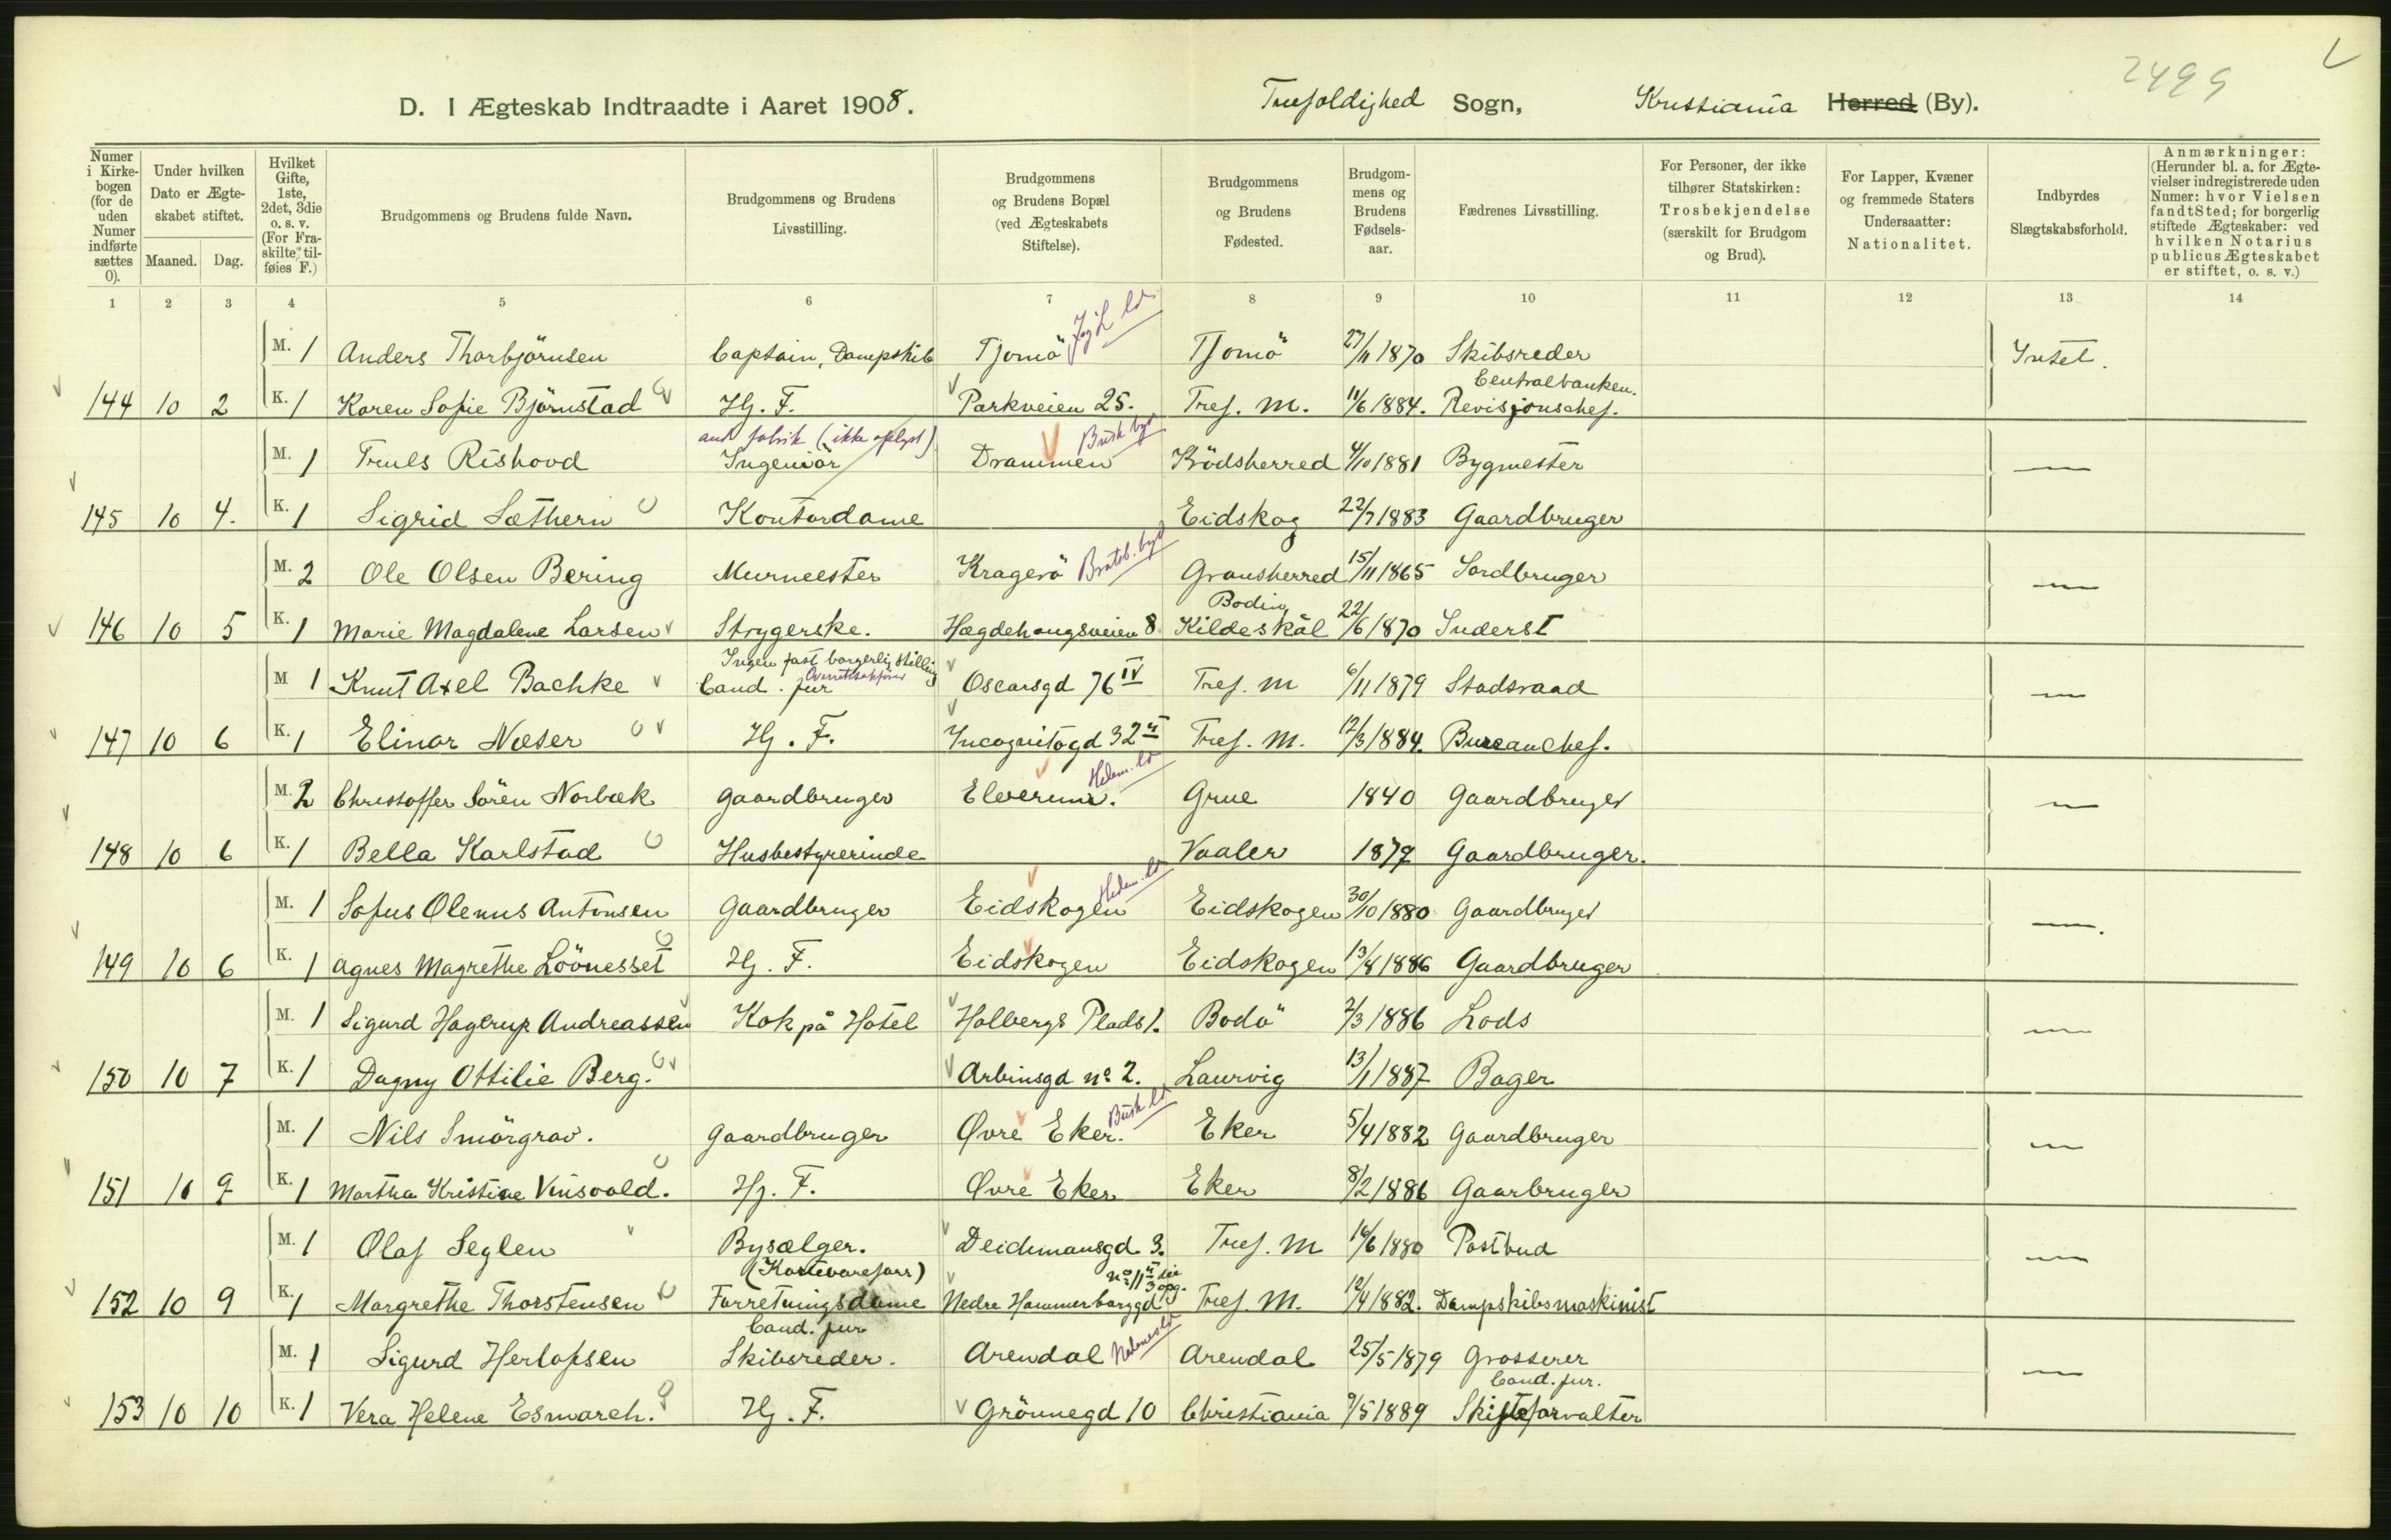 2499
D. I Ægteskab Indtraadte i Aaret 1908. Trefoldighed Sogn, Kristiania Herred (By).
Numer i Kirkebogen (for de uden Numer indførte sættes 0).
Under hvilken Dato er Ægteskabet stiftet.
Maaned. Dag.
Hvilket Gifte, 1ste, 2det, 3die o. s. v. (For Fraskilte tilføies F.)
Brudgommens og Brudens fulde Navn.
Brudgommens og Brudens Livsstilling.
Brudgommens og Brudens Bopæl (ved Ægteskabets Stiftelse).
Brudgommens og Brudens Fødested.
Brudgommens og Brudens Fødselsaar.
Fædrenes Livsstilling.
For Personer, der ikke tilhører Statskirken: Trosbekjendelse (særskilt for Brudgom og Brud).
For Lapper, Kvæner og fremmede Staters Undersaatter: Nationalitet.
Indbyrdes Slægtskabsforhold.
Anmærkninger: (Herunder bl. a. for Ægtevielser indregistrerede uden Numer: hvor Vielsen fandt Sted; for borgerlig stiftede Ægteskaber: ved hvilken Notarius publicus Ægteskabet er stiftet, o. s. v.)
1 2 3 4 5 6 7 8 9 10 11 12 13 14
M. 1 Anders Thorbjörnsen Captain, Dampskib Tjomö Tjomö 27/11 1870 Skibsreder Intet.
Centralbanken.
144 10 2 K. 1 Karen Sofie Björnstad Hj. F. Parkveien 25. Tref. M. 11/6 1884. Revisjonschef.
and fabrik (ikke oplyst) Busk byd
M. 1 Truls Rishovd Ingeniör Drammen Krödsherred 4/10 1881 Bygmester —
145 10 4. K. 1 Sigrid Sæthern Kontordame Eidskog 22/7 1883 Gaardbruger
M. 2 Ole Olsen Bering Murmester Kragerö Bratsb. byd Gransherred 15/11 1865 Jordbruger —
Bodin
146 10 5 K. 1 Marie Magdalene Larsen Strygerske. Hægdehaugsveien 8 Kildeskål 22/6 1870 Inderst
Ingen fast borgerlig stilling
Overretssakfører
M 1 Knut Axel Bachke Cand. jur Oscarsgd 76 IV Tref. M 6/11 1879 Stadsraad —
147 10 6 K. 1 Elinor Næser Hj. F. Incognitogd 32 II Tref. M. 12/3 1884. Bureauchef.
Hedem. ld
M. 2 Christoffer Sören Norbæk Gaardbruger Elverum. Grue 1840 Gaardbruger —
148 10 6 K. 1 Bella Karlstad Husbestyrerinde Vaaler 1879 Gaardbruger.
Hedem. ld
M. 1 Sofus Olenus Antonsen Gaardbruger Eidskogen Eidskogen 30/10 1880 Gaardbruger —.
149 10 6 K. 1 Agnes Magrethe Löönesset Hj. F. Eidskogen Eidskogen 13/8 1886 Gaardbruger
M. 1 Sigurd Hagerup Andreassen Kok på Hotel Holbergs Plads 1. Bodö 2/3 1886 Lods —
150 10 7 K. 1 Dagny Ottilie Berg. Arbinsgd no 2. Laurvig 13/1 1887 Bager
Busk ld
M. 1 Nils Smörgrav. Gaardbruger Øvre Eker. Eker 5/4 1882 Gaardbruger —
151 10 9 K. 1 Martha Kristine Vinsvold. Hj. F. Øvre Eker Eker 8/2 1886 Gaarbruger
M. 1 Olaf Seglen Bysælger. Deichmansgd 3. Tref. M 16/6 1880 Postbud —
(Kortevareforr) no 11
3 opg.
152 10 9 K. 1 Margrethe Thorstensen Forretningsdame Nedre Hammerborggd Tref. M. 12/4 1882. Dampskibsmaskinist
Cand. jur
M. 1 Sigurd Herlofsen Skibsreder. Arendal Nedenes ld Arendal 25/5 1879 Grosserer —
Cand. jur.
153 10 10 K. 1 Vera Helene Esmarch. Hj. F. Grönnegd 10 Christiania 9/5 1889 Skifteforvalter